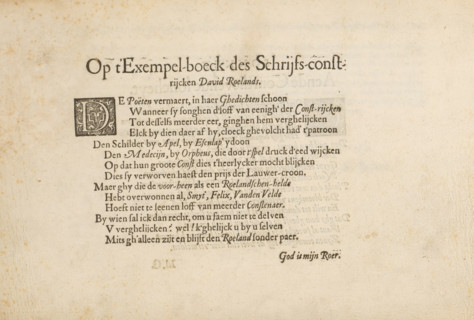 Op t'Exempel-boeck des Schrijfs-const-
rijcken David Roelands.
DE Poëten vermaert, in haer Ghedichten schoon
Wanneer sy songhen d'loff van eenigh' der Const-rijcken
Tot desselfs meerder eer, ginghen hem verghelijcken
Elck by dien daer af hy, cloeck ghevolcht had' t'patroon
Den Schilder by Apel, by Esculap' ydoon
Den Medecijn, by Orpheus, die door t'spel druck d'eed wijcken
Op dat hun groote Const dies t'heerlycker mocht blijcken
Dies sy verworven haest den prijs der Lauwer-croon.
Maer ghy die de voor-heen als een Roelandschen-helde
Hebt overwonnen al, Smyt, Felix, Vanden Velde
Hoeft niet te leenen loff van meerder Constenaer.
By wien sal ick dan recht, om u faem niet te delven
V verghelijcken? wel! k'ghelijck u by u selven
Mits gh'alleen zijt en blijft den Roeland sonder paer.
God is mijn Roer.